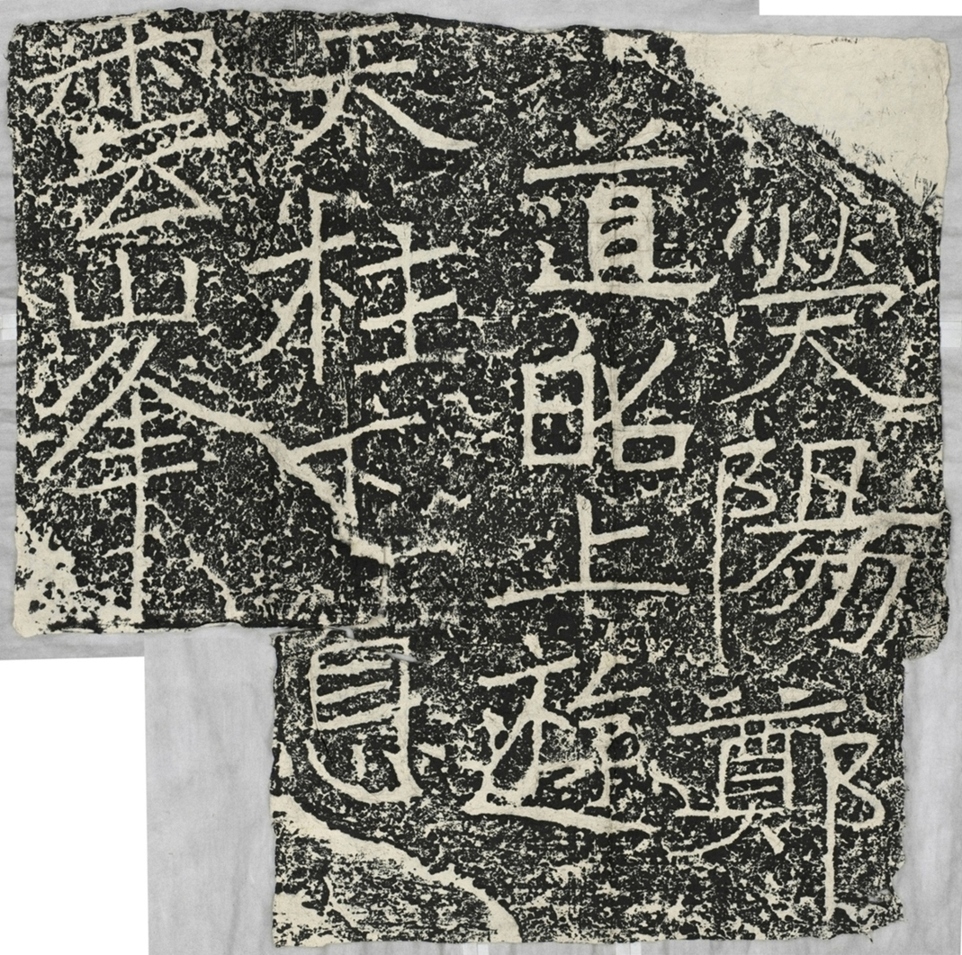 滎陽鄭
道昭上遊
天柱下息
雲峯